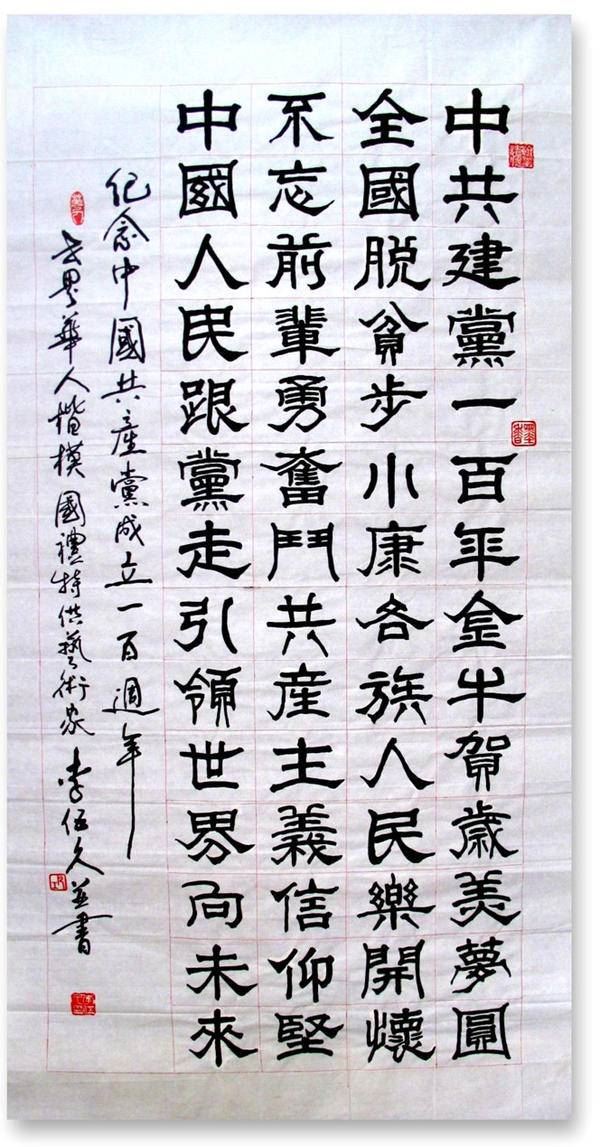 中共建黨一百年金牛賀歲美夢圓
全國脫貧步小康各族人民樂開懷
不忘前輩勇奮鬥共產主義信仰堅
中國人民跟黨走引領世界向未來
紀念中國共產黨成立一百週年
世界華人楷模國禮特供藝術家李伍久並書